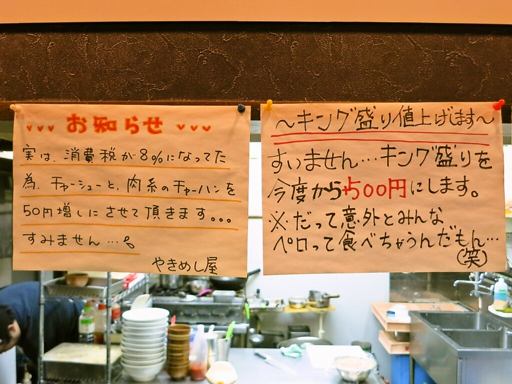 お知らせ
実は、消費税が8%になってた
為、チャーシューと、肉系のチャーハンを
50円増しにさせて頂きます。。。
すみません…。
やきめし屋
～キング盛り値上げします～
すいません…キング盛りを
今度から+500円にします。
※だって意外とみんな
ペロって食べちゃうんだもん…
(笑)